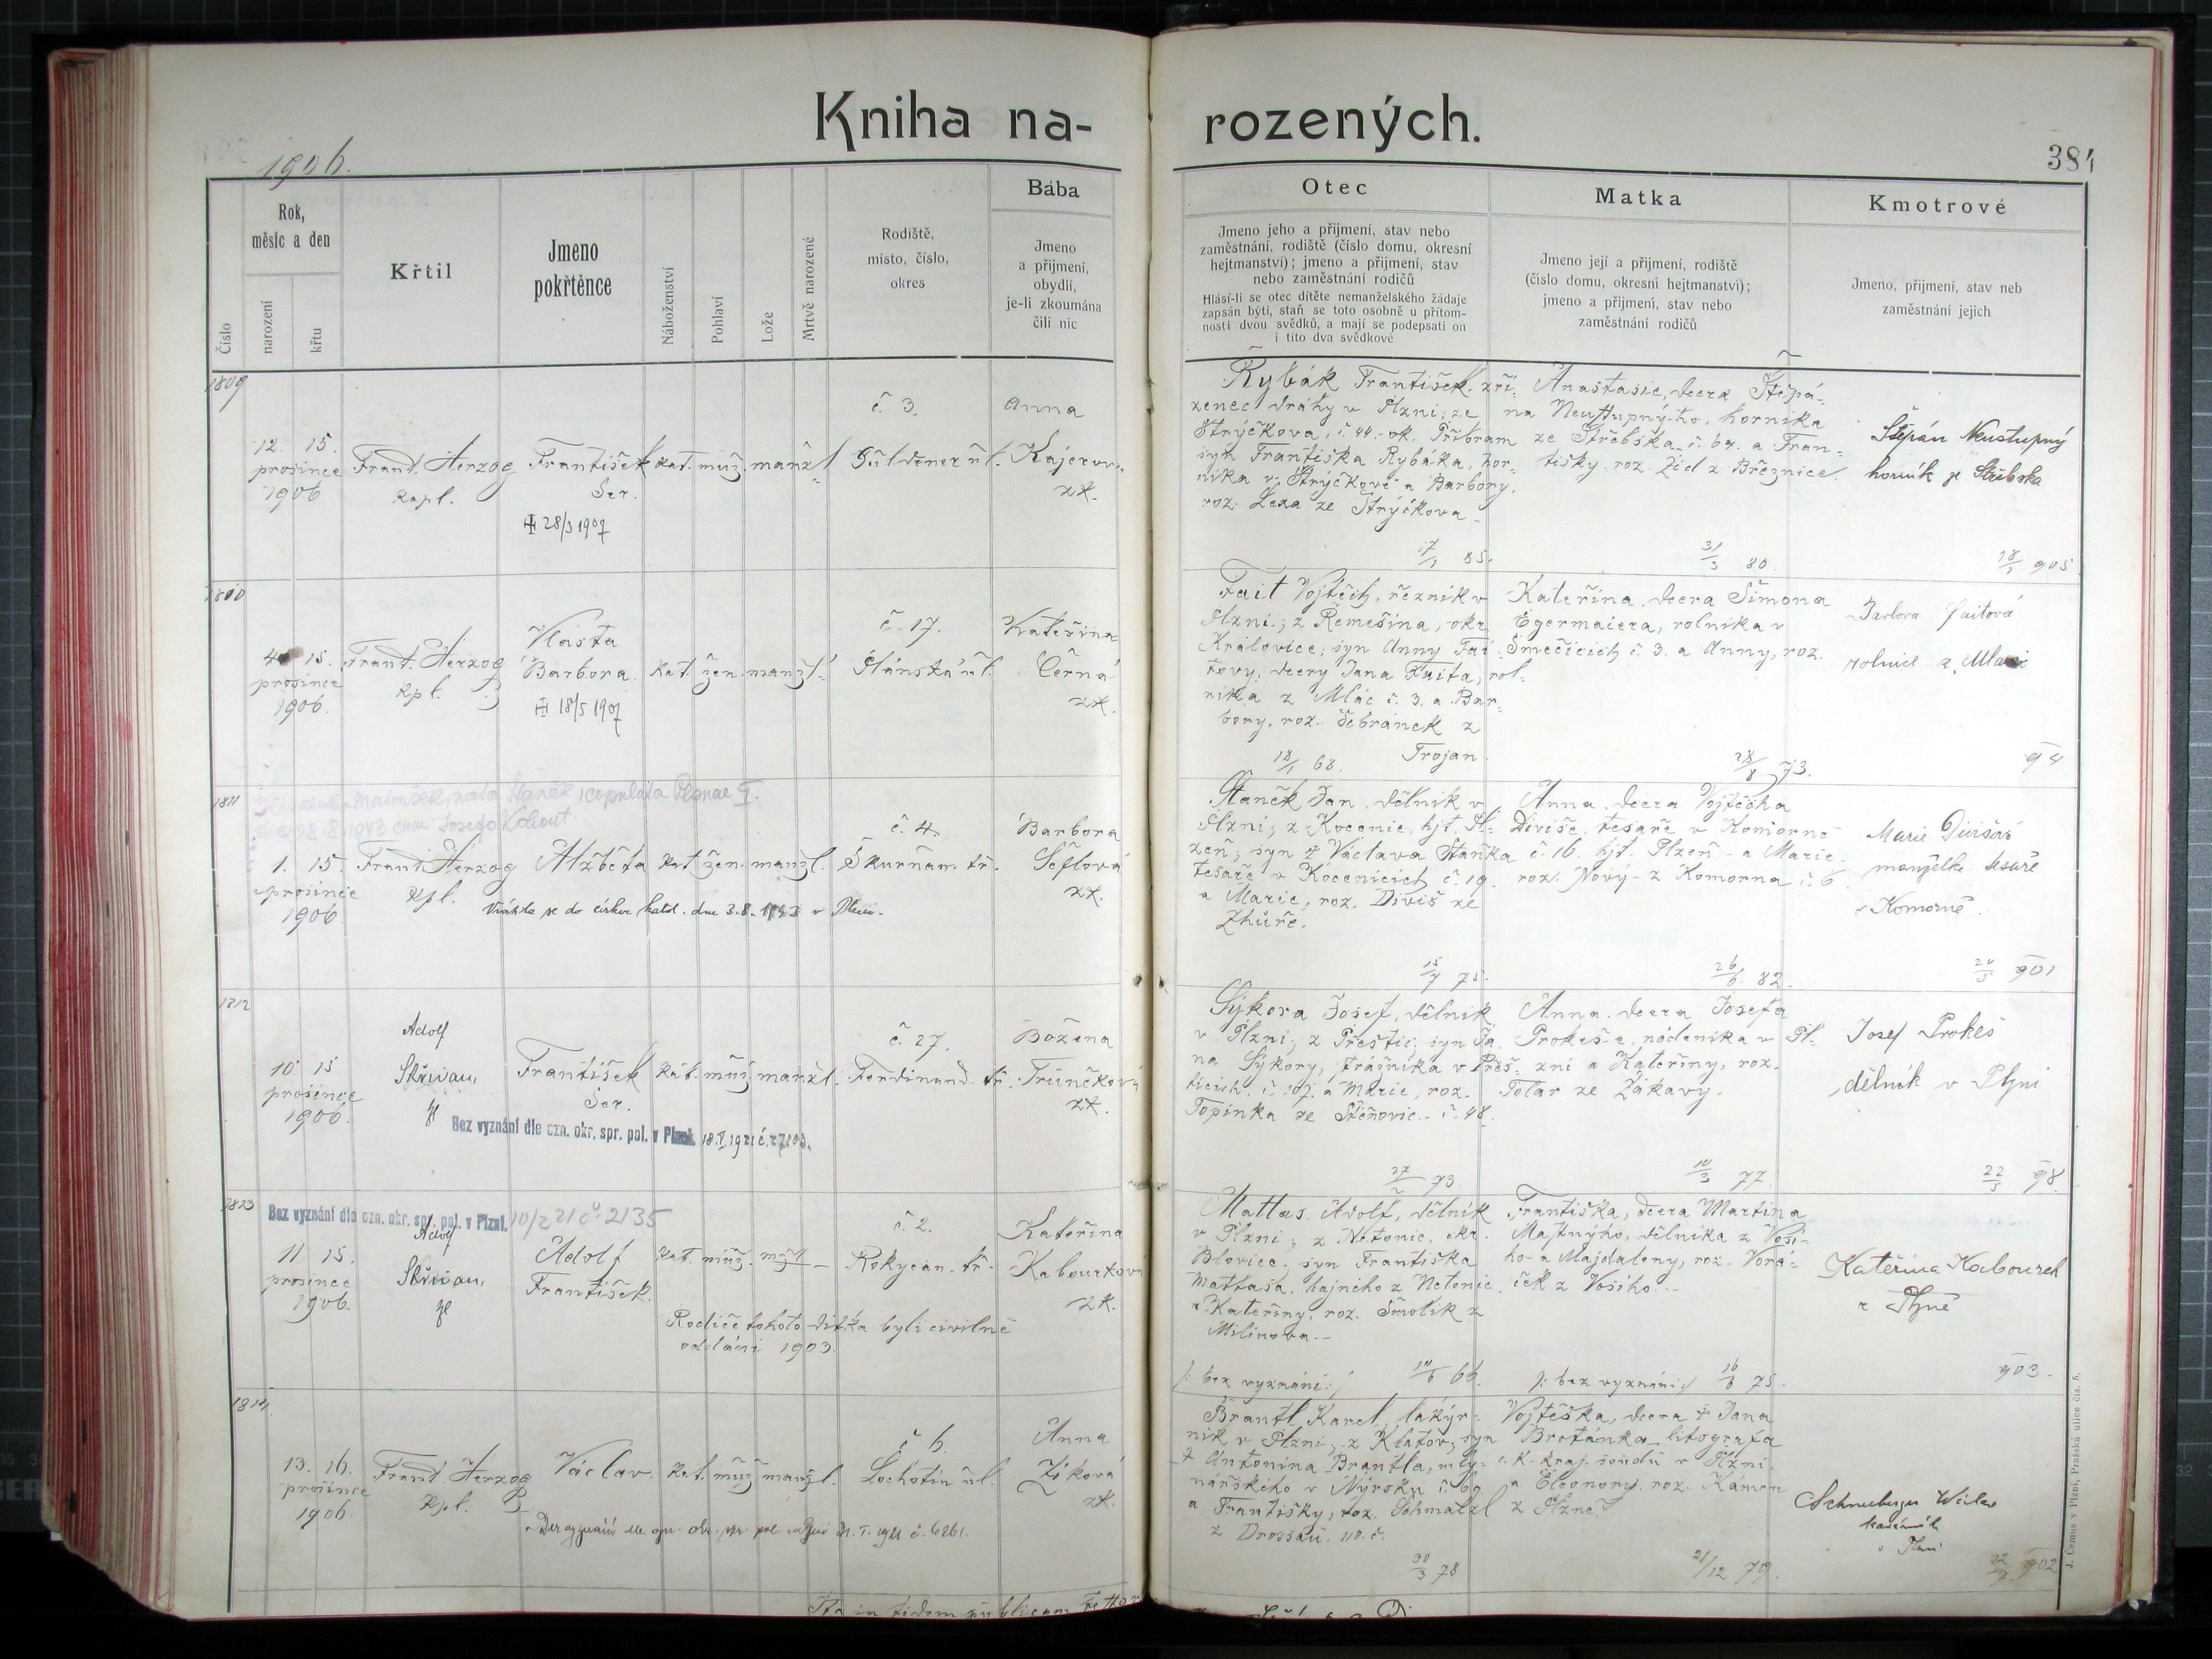 Kniha na-
rozených.
1906.
384
Číslo
Rok,
měsíc a den
narození
křtu
Křtil
Jmeno
pokřtěnce
Náboženství
Pohlaví
Lože
Mrtvě narozené
Rodiště,
místo, číslo,
okres
Bába
Jmeno
a přijmení,
obydlí,
je-li zkoumána
čili nic
Otec
Jmeno jeho a přijmení, stav nebo
zaměstnání, rodiště (číslo domu, okresní
hejtmanství); jmeno a přijmení, stav
nebo zaměstnání rodičů
Hlásí-li se otec dítěte nemanželského žádaje
zapsán býti, staň se toto osobně u přítom-
nosti dvou svědků, a mají se podepsati on
i tito dva svědkové
Matka
Jmeno její a přijmení, rodiště
(číslo domu, okresní hejtmanství);
jmeno a přijmení, stav nebo
zaměstnání rodičů
Kmotrové
Jmeno, přijmení, stav neb
zaměstnání jejich
1809
12. 15.
prosince
1906
Frant. Herzog
Kapl.
František
Ser.
28/3 1907
kat. muž. manžl
č 3.
Güldener ul.
Anna
Kajerova
zk.
Rybák František, zří-
zenec dráhy v Plzni; ze
Strýčkova, č. 44. ok. Příbram
syn Františka Rybáka, hor-
níka v Strýčkově a Barbory,
roz. Lexa ze Strýčkova
17/1 85.
Anastasie, dcera Štěpá-
na Neustupný-ho, horníka
ze Střebska č. 64. a Fran-
tišky roz. Žid z Březnice.
31/3 80.
Štěpán Neustupný
horník ze Střebska
18/1 905
1810
4 15.
prosince
1906.
Frant. Herzog
Kpl.
Vlasta
Barbora
18/5 1907
kat. žen. manžl.
č. 17.
Plánská ul.
Kateřina
Černá
zk.
Fait Vojtěch, řezník v
Plzni; z Řemešína, okr.
Královice; syn Anny Fai-
tovy, dcery Jana Faita, rol-
níka z Mlác č. 3. a Bar-
bory, roz. Šebránek z
Trojan.
18/1 68.
Kateřina, dcera Šimona
Egermaiera, rolníka v
Směčicích č. 3. a Anny, roz.
28/8 73.
Barbora Faitová
rolnice z
94
1811
Matoušek, nata Staněk, copulata Plsnae
28. 8. 1943 cum Josefo Kohout
1. 15.
prosince
1906
Frant. Herzog
Kpl.
Alžběta
kat. žen. manžl.
Vrátila se do církve katol. dne 3.8. 1943 v Plzni.
č. 4.
Škurňan. tř.
Barbora
Šeflová
zk.
Staněk Jan, dělník v
Plzni; z Kocenic, hjt. Pl-
zeň; syn † Václava Staňka
tesaře v Kocenicích č. 19.
a Marie, roz. Diviš ze
Zhůře.
15/4 75.
Anna, dcera Vojtěcha
Diviše, tesaře v Komorně
č. 16. hjt. Plzeň a Marie
roz. Nový z Komorna č. 6
26/6 82.
Marie Divišová
manželka tesaře
z Komorně.
20/5 901
1812
10 15
prosince
1906.
Adolf
Střivan,
František
Ser.
kat. muž. manžl.
Bez vyznání dle ozn. okr. spr. pol. v Plzni. 18.I.1921 č. 27103.
č. 27.
Ferdinand. tř.
Božena
Trunečková
zk.
Sýkora Josef, dělník
v Plzni; z Přeštic; syn Ja-
na Sýkory, strážníka v Přeš-
ticích, č. 107. a Marie, roz.
Topinka ze Stěnovic č. 48.
27/2 73.
Anna, dcera Josefa
Prokeše, nádeníka v Pl-
zni a Kateřiny, roz.
Tolar ze Žákavy.
10/3 77.
Josef Prokeš
dělník v Plzni
22/5 98.
1813
Bez vyznání dle ozn. okr. spr. pol. v Plzni. 10/2 21 č. 2135
11. 15.
prosince
1906.
Adolf
Střivan,
Adolf
František.
kat. muž. mžl
Rodiče tohoto dítka byli civilně
oddáni 1903.
č. 2.
Rokycan. tř.
Kateřina
Kabourková
zk.
Mattas Adolf, dělník
v Plzni; z Netonic, okr.
Blovice, syn Františka
Mattaša, hajného z Netonic
a Kateřiny, roz. Smolík z
Milinova.
/: bez vyznání :/ 10/6 66.
Františka, dcera Martina
Mastnýho, dělníka z Vosí-
ho a Majdaleny, roz. Vorá-
ček z Vosího.
/: bez vyznání :/ 16/8 75.
Kateřina Kabourek
z Plzně
903.
1814
13. 16.
prosince
1906
Frant. Herzog
Kpl.
Václav.
kat. muž. manžl.
Bez vyznání dle ozn. okr. spr. pol. v Plzni 21. I. 1921 č. 6261.
č 6.
Lochotín ul.
Anna
Ziková
zk.
Brantl Karel, lakýr-
ník v Plzni; z Klatov; syn
† Antonína Brantla, mly-
nářského v Nýrsku č. 69.
a Františky, roz. Schmalzl
z Drossau. 110. č.
30/3 78
Vojtěška, dcera † Jana
Brotánka, litografa
c. k. kraj. soudu v Plzni.
a Eleonory, roz. Kámen
z Plzně.
21/12 79.
Schneeberger
v Plzni
902
Ita in fidem publicam
J. Černus v Plzni, Pražská ulice čís. 5.